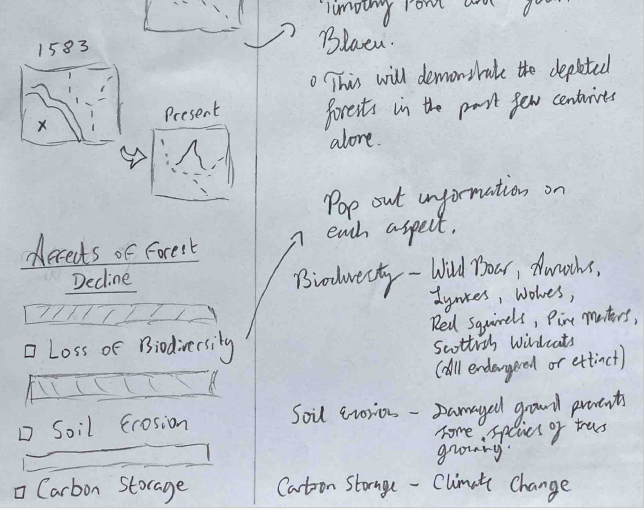 1583
Present
Affects of Forest
Decline
Loss of Biodiversity
Soil Erosion
Carbon Storage
Timothy Pont and
Blaeu.
This will demonstrate the depleted
forests in the past few centuries
alone.
Pop out information on
each aspect.
Biodiversity - Wild Boar, Aurochs,
Lynxes, Wolves,
Red Squirrels, Pine Martens,
Scottish Wildcats
(All endangered or extinct)
Soil Erosion - Damaged ground prevents
some species of trees
growing.
Carbon Storage - Climate Change